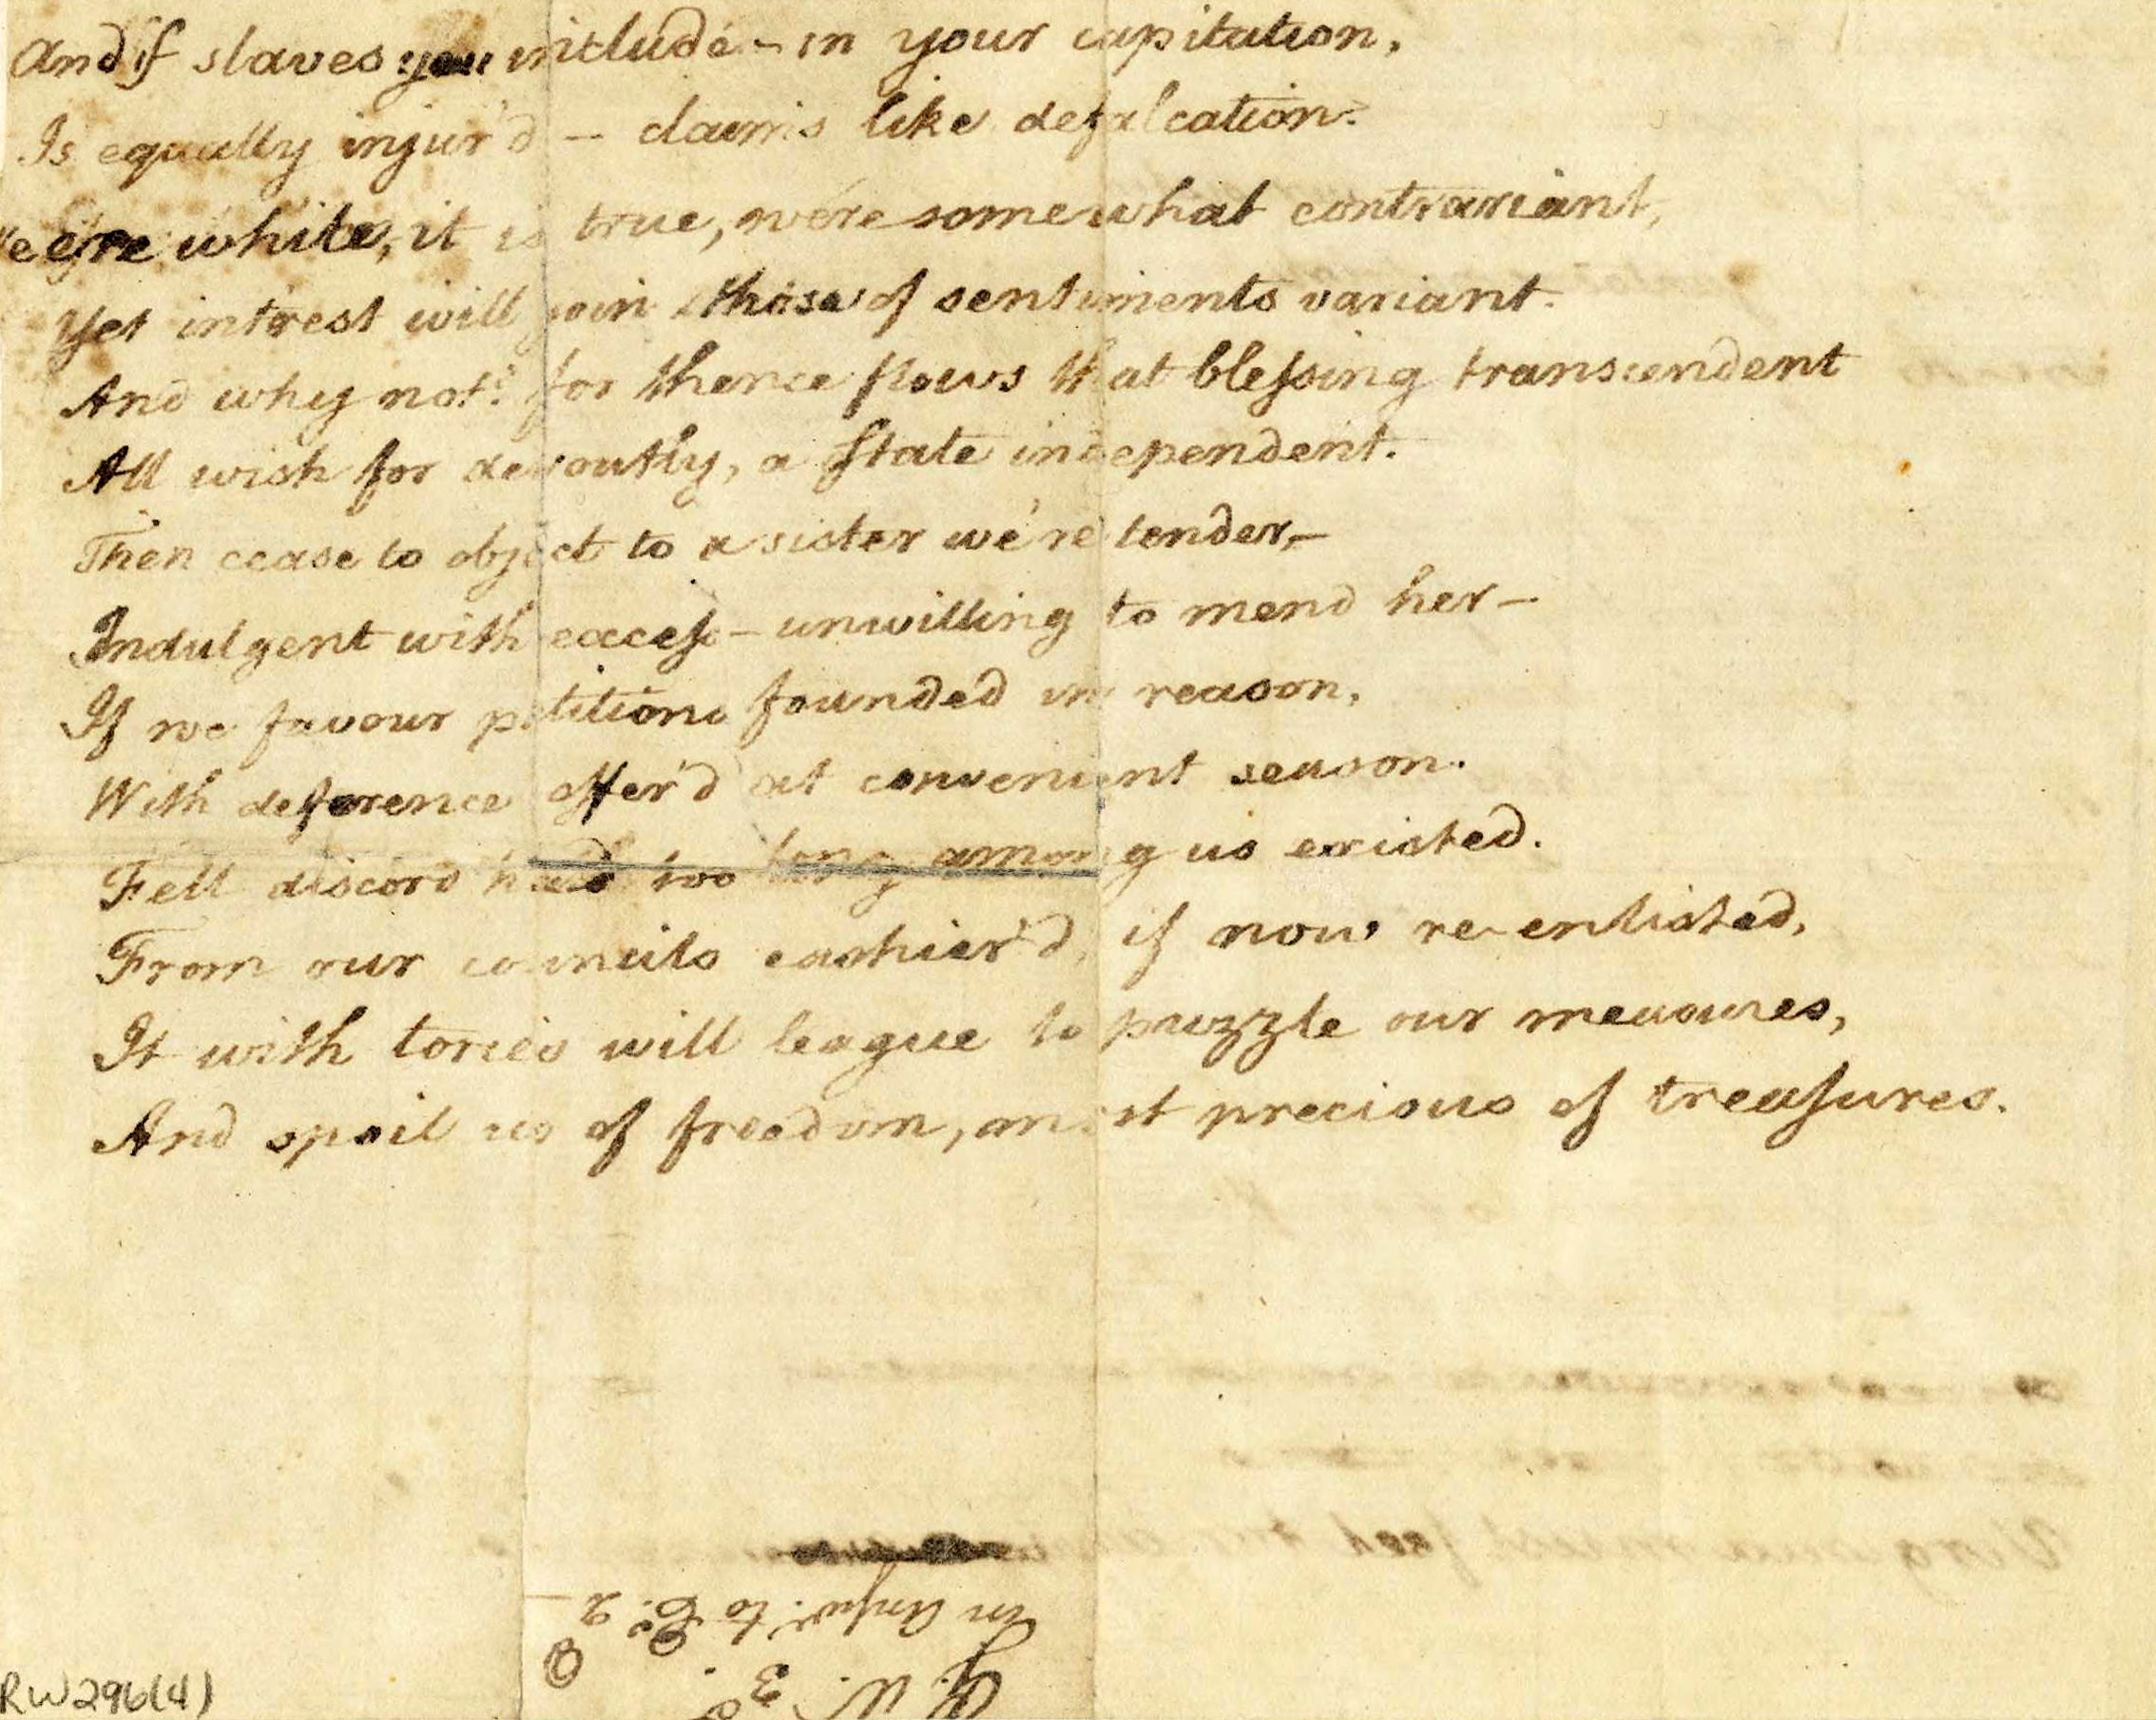 And if slaves you include – in your capitation,
Is equally injur'd – claims like defalcation.
We're white, it is true, we're somewhat contrariant,
Yet intrest will join those of sentiments variant.
And why not? for thence flows that blessing transcendent
All wish for devoutly, a State independent.
Then cease to object to a sister we're tender,–
Indulgent with excess – unwilling to mend her –
If we favour petitions founded in reason,
With deference offer'd at convenient season.
Fell discord had too long among us existed.
From our councils cashier'd, if now re-enlisted,
It with tories will league to puzzle our measures,
And spoil us of freedom, most precious of treasures.
in Answr. to 
RW296(4)